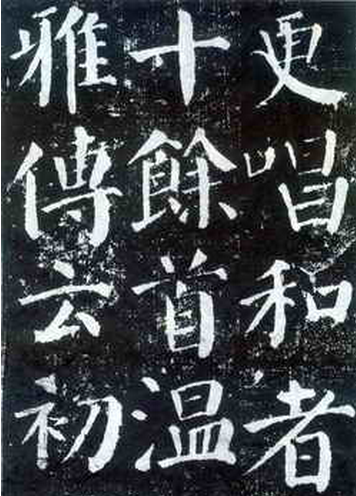 更唱和者
十餘首温
雅傳云初